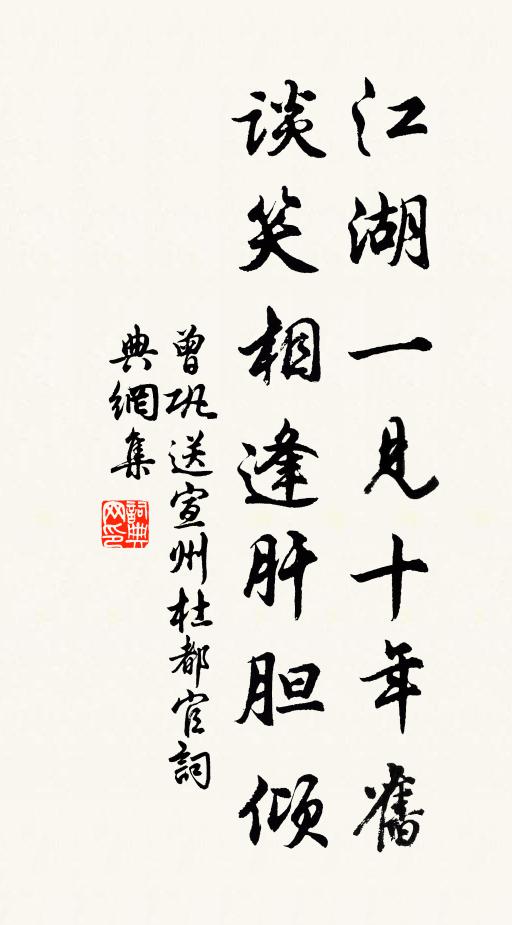 江湖一見十年舊
谈笑相逢肝胆倾
曾巩送宣州杜都官詞
典網集
詞典
网印